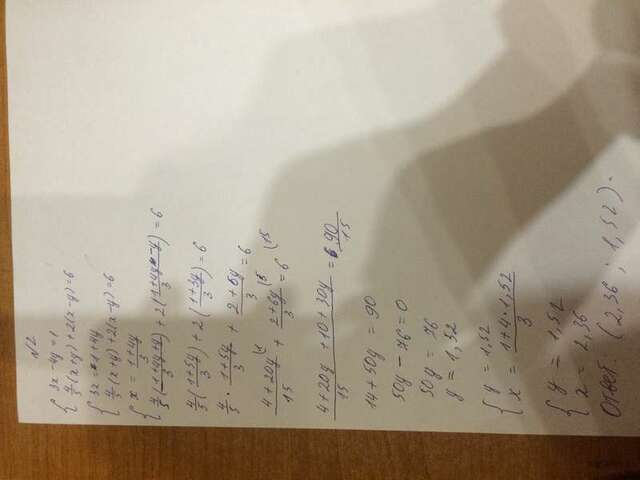 №2
{ 3x - 4y = 1
4/5 (x+y) + 2(x-y) = 6
{ 3x = 1+4y
4/5 (x+y) + 2(x-y) = 6
{ x = (1+4y)/3
4/5 ((1+4y+y)/3) + 2((1+4y-y)/3) = 6
4/5 ((1+5y)/3) + 2((1+3y)/3) = 6
4/5 · (1+5y)/3 + (2+6y)/3 = 6
(4+20y)/15 \1 + (2+6y)/3 \5 = 6 \15
(4+20y+10+30y)/15 = 90/15
14+50y = 90
50y - 76 = 0
50y = 76
y = 1,52
{ y = 1,52
x = (1+4·1,52)/3
{ y = 1,52
x = 2,36
Ответ: (2,36 ; 1,52).